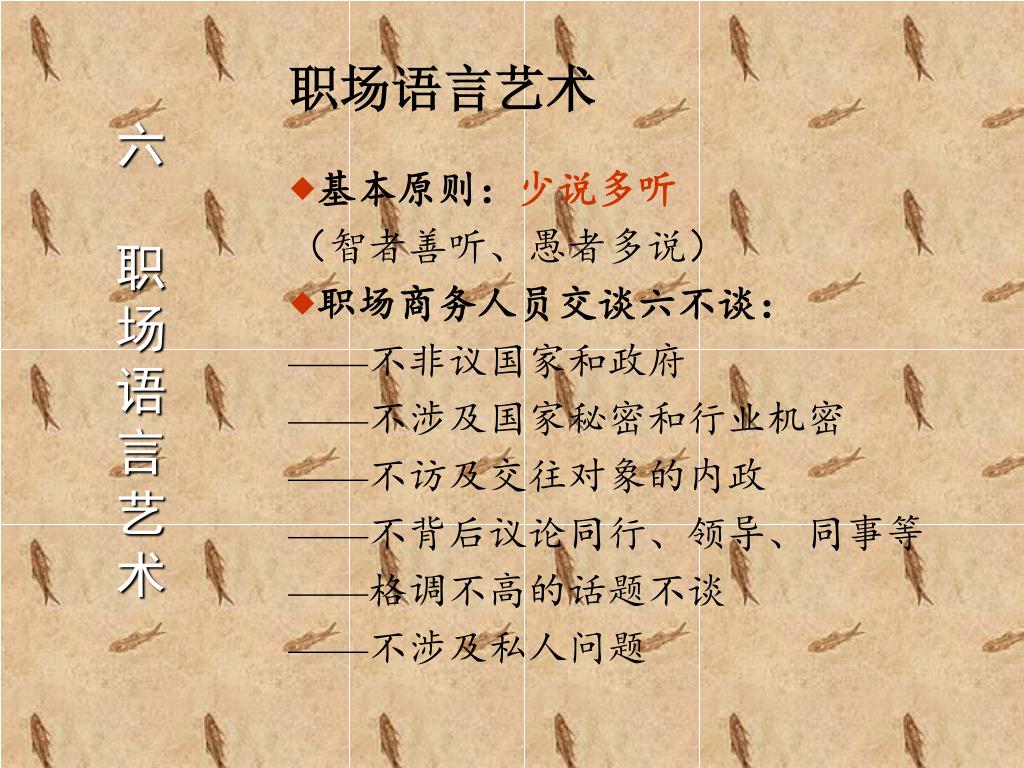 六 职场语言艺术
职场语言艺术
基本原则：少说多听
（智者善听、愚者多说）
职场商务人员交谈六不谈：
——不非议国家和政府
——不涉及国家秘密和行业机密
——不访及交往对象的内政
——不背后议论同行、领导、同事等
——格调不高的话题不谈
——不涉及私人问题